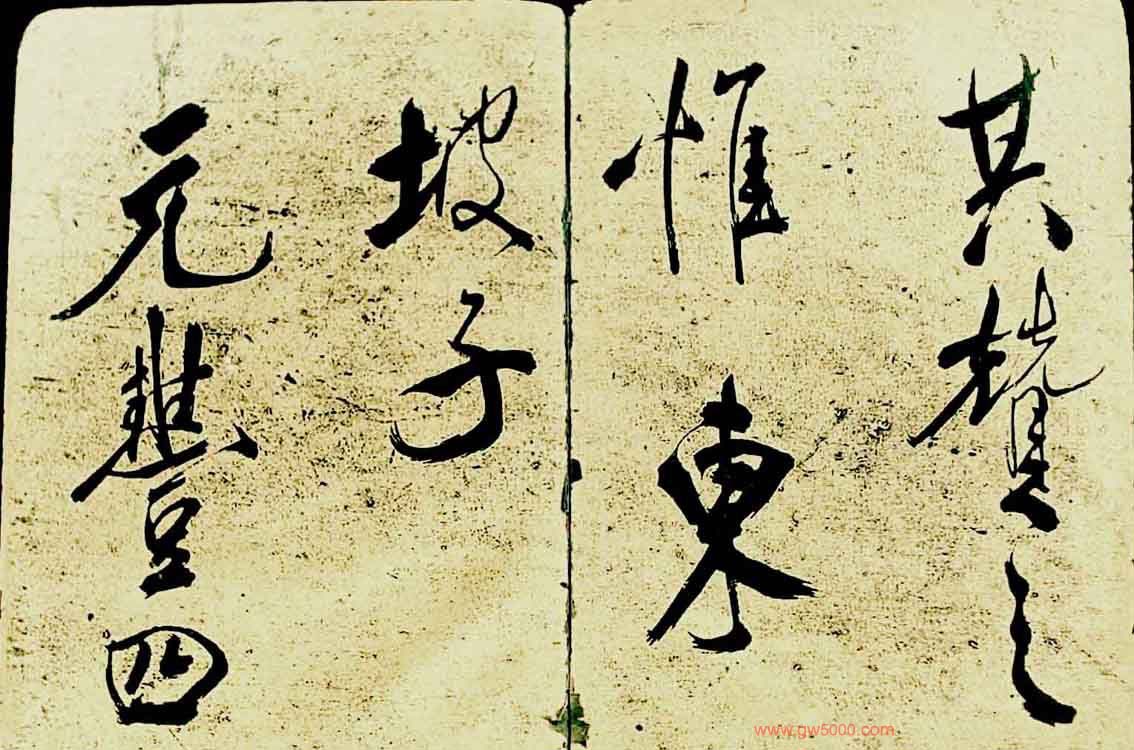 其贊之
惟東
坡子
元豐四
www.gw5000.com